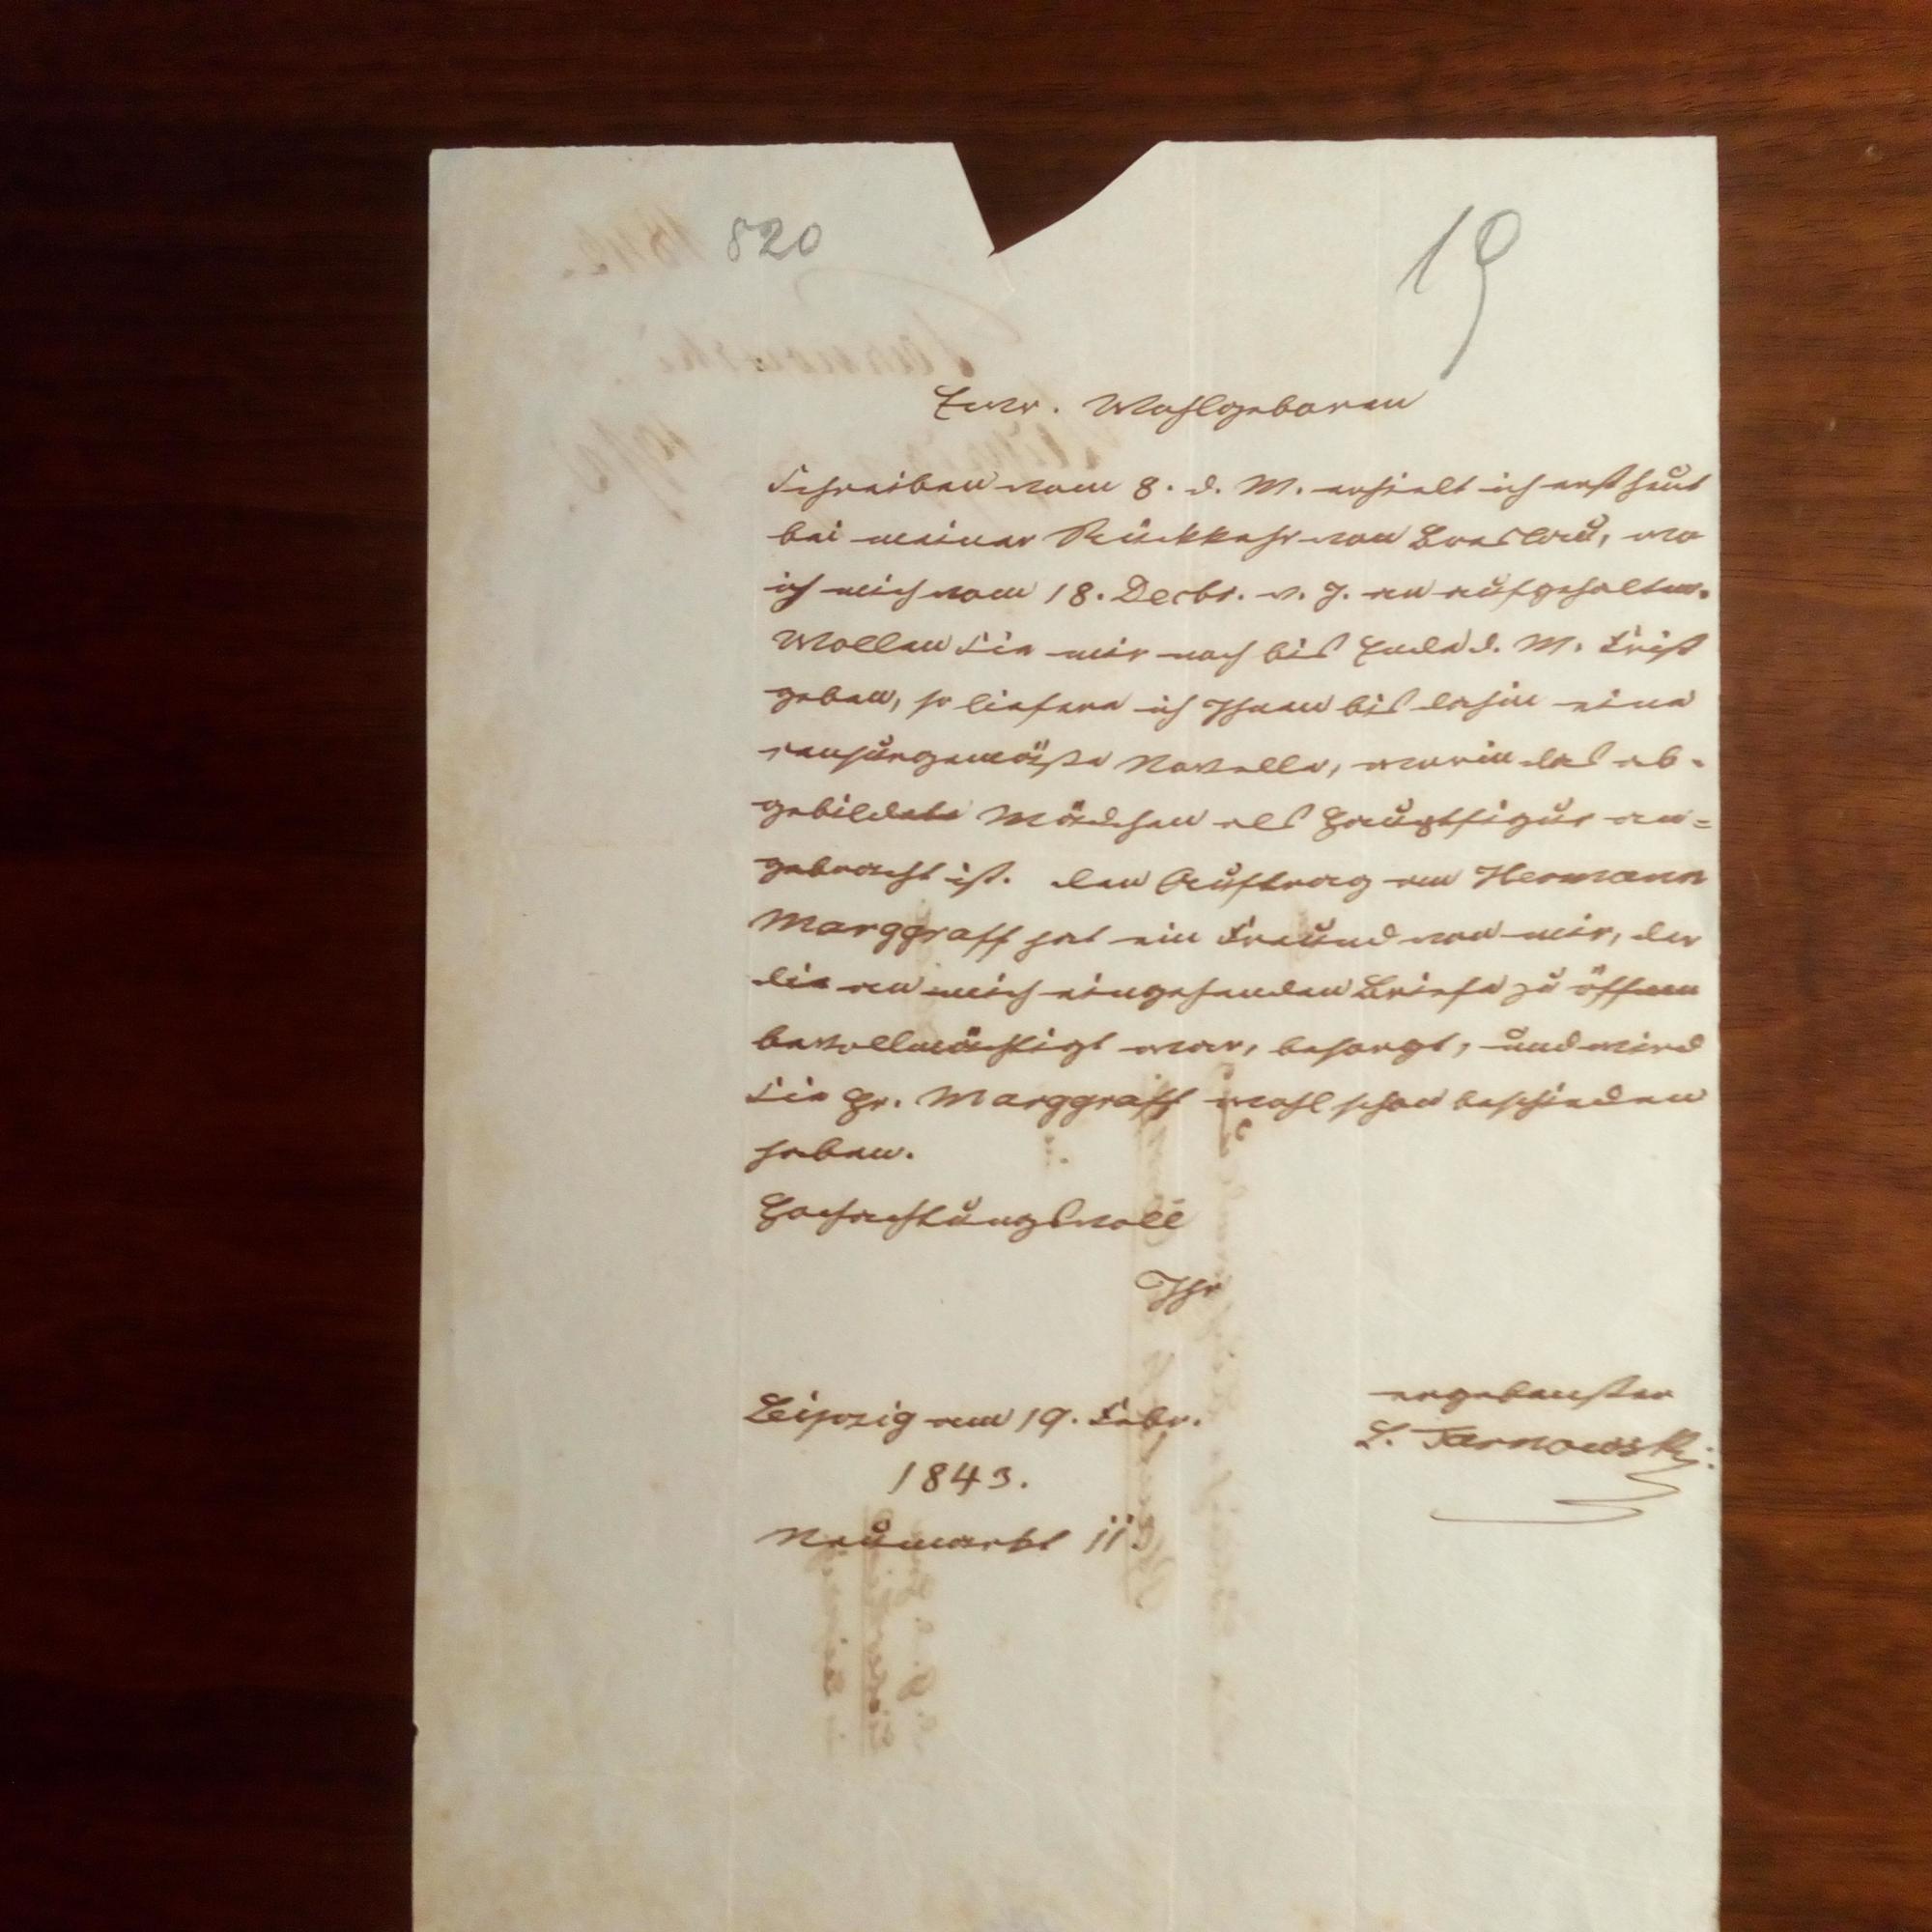 820
19
Euer. Wohlgeboren
Schreiben vom 8. d. M. erhielt ich erst heut
bei meiner Rückkehr von Breslau, wo
ich mich vom 18. Decbr. v. J. an aufgehalten.
Wollen Sie mir noch bis Ende d. M. Frist
geben, so liefere ich Ihnen bis dahin eine
censurgemäße Novelle, worin das ab-
gebildete Mädchen als Hauptfigur an=
gebracht ist. Den Auftrag an Hermann
Marggraff hat ein Freund von mir, der
die an mich eingehenden Briefe zu öffnen
bevollmächtigt war, besorgt, und wird
Sie Hr. Marggraff wohl schon beschieden
haben.
Hochachtungsvoll
Ihr
ergebenster
L. Tarnowski
Leipzig am 19. Febr.
1843.
Neumarkt 11